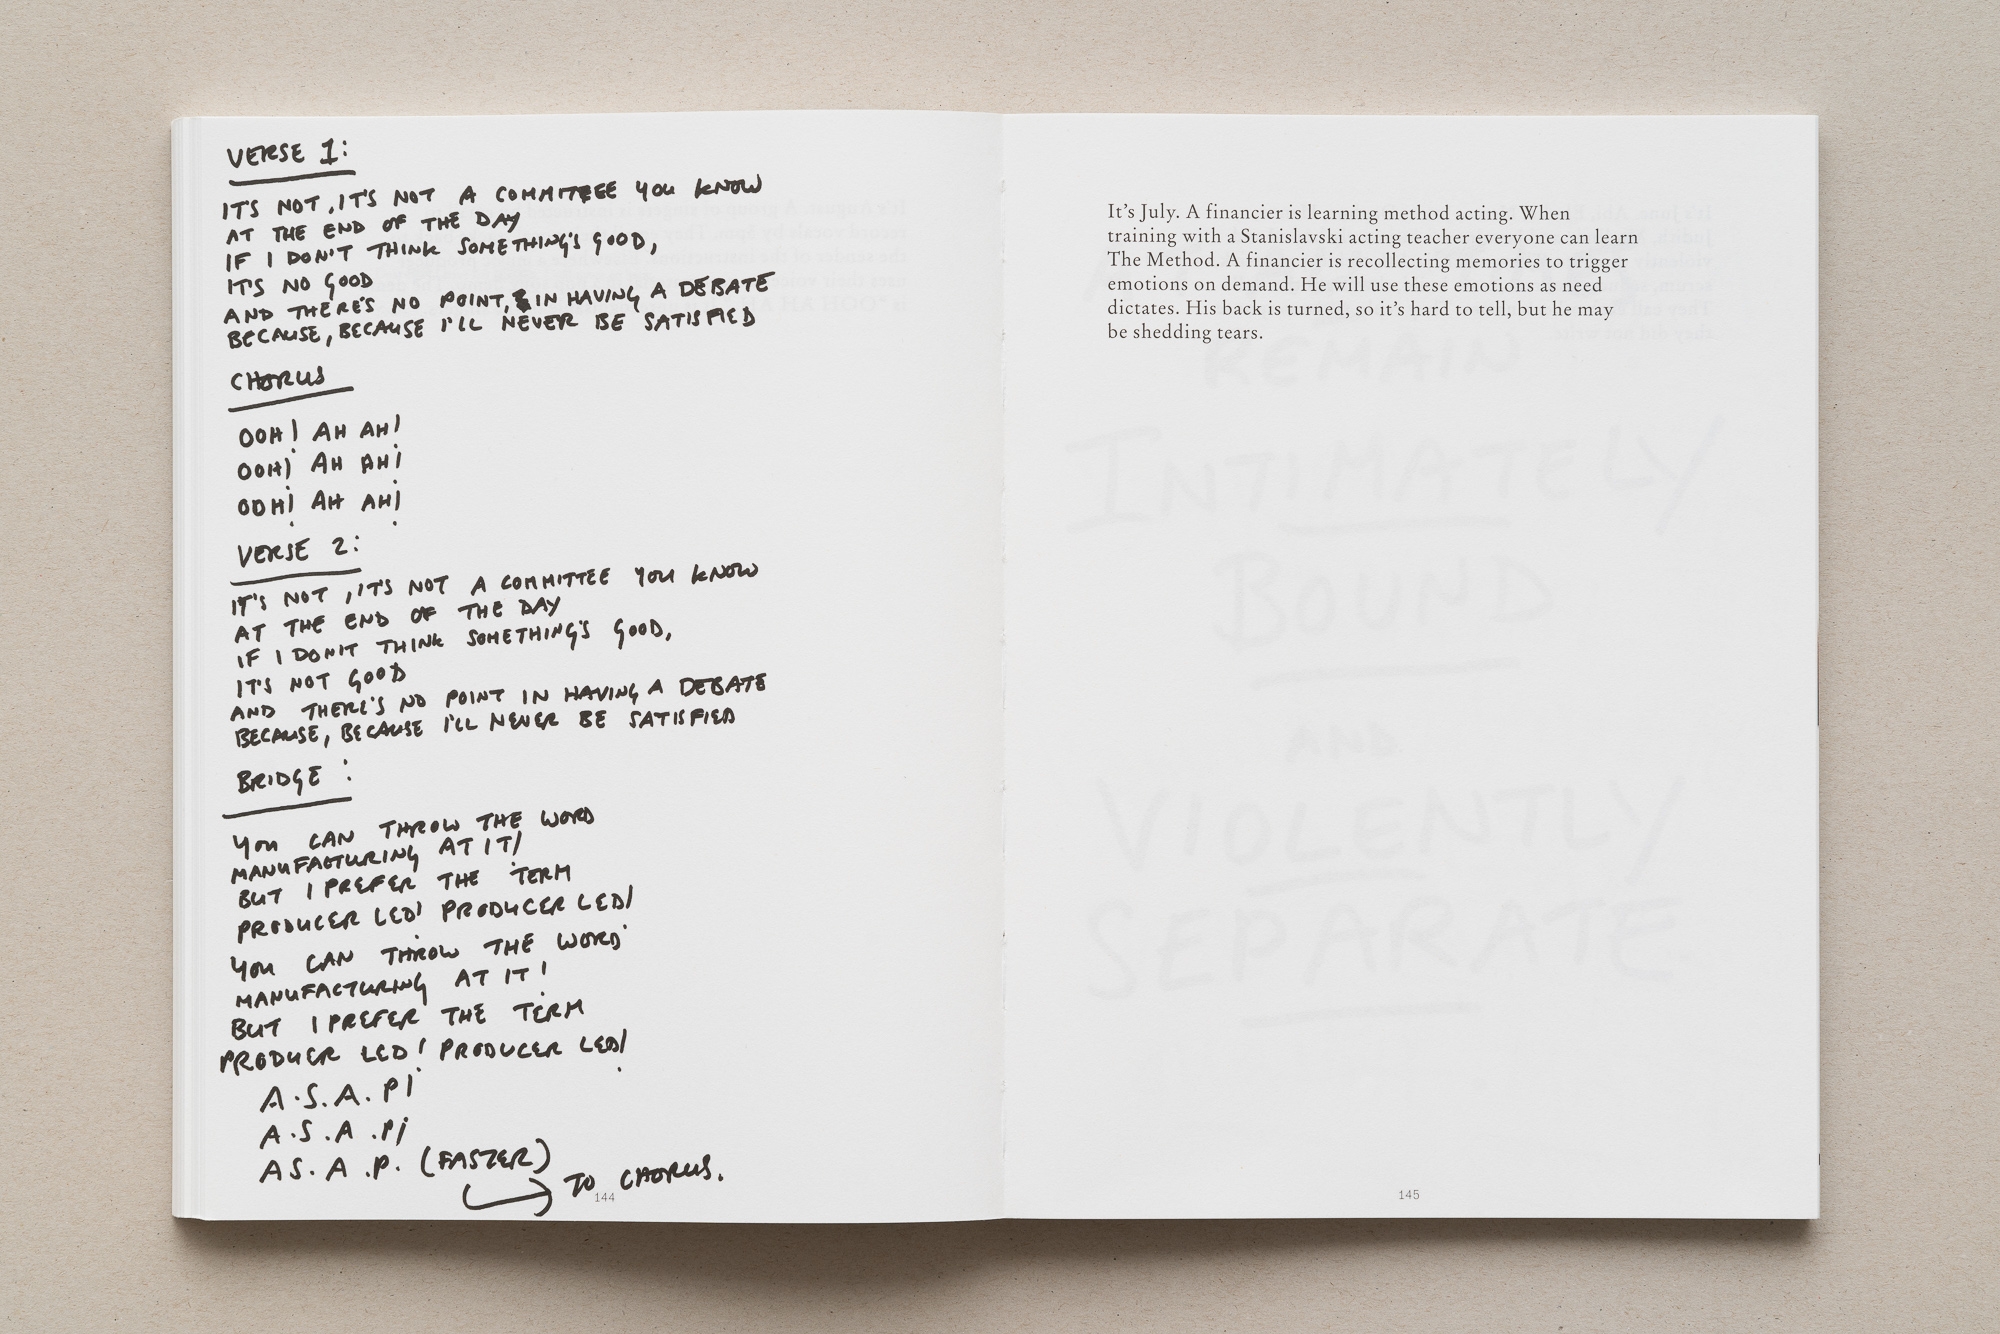 VERSE 1:
IT'S NOT, IT'S NOT A COMMITEEE YOU KNOW
AT THE END OF THE DAY
IF I DON'T THINK SOMETHING'S GOOD,
IT'S NO GOOD
AND THERE'S NO POINT, IN HAVING A DEBATE
BECAUSE, BECAUSE I'LL NEVER BE SATISFIED
CHORUS
OOH! AH AH!
OOH! AH AH!
OOH! AH AH!
VERSE 2:
IT'S NOT, IT'S NOT A COMMITTEE YOU KNOW
AT THE END OF THE DAY
IF I DON'T THINK SOMETHING'S GOOD,
IT'S NOT GOOD
AND THERE'S NO POINT IN HAVING A DEBATE
BECAUSE, BECAUSE I'LL NEVER BE SATISFIED
BRIDGE:
YOU CAN THROW THE WORD
MANUFACTURING AT IT!
BUT I PREFER THE TERM
PRODUCER LED! PRODUCER LED!
YOU CAN THROW THE WORD
MANUFACTURING AT IT!
BUT I PREFER THE TERM
PRODUCER LED! PRODUCER LED!
A.S.A.P!
A.S.A.P!
A.S.A.P. (FASTER)
TO CHORUS.
144
It's July. A financier is learning method acting. When
training with a Stanislavski acting teacher everyone can learn
The Method. A financier is recollecting memories to trigger
emotions on demand. He will use these emotions as need
dictates. His back is turned, so it's hard to tell, but he may
be shedding tears.
REMAIN
INTIMATELY
BOUND
AND
VIOLENTLY
SEPARATE
145